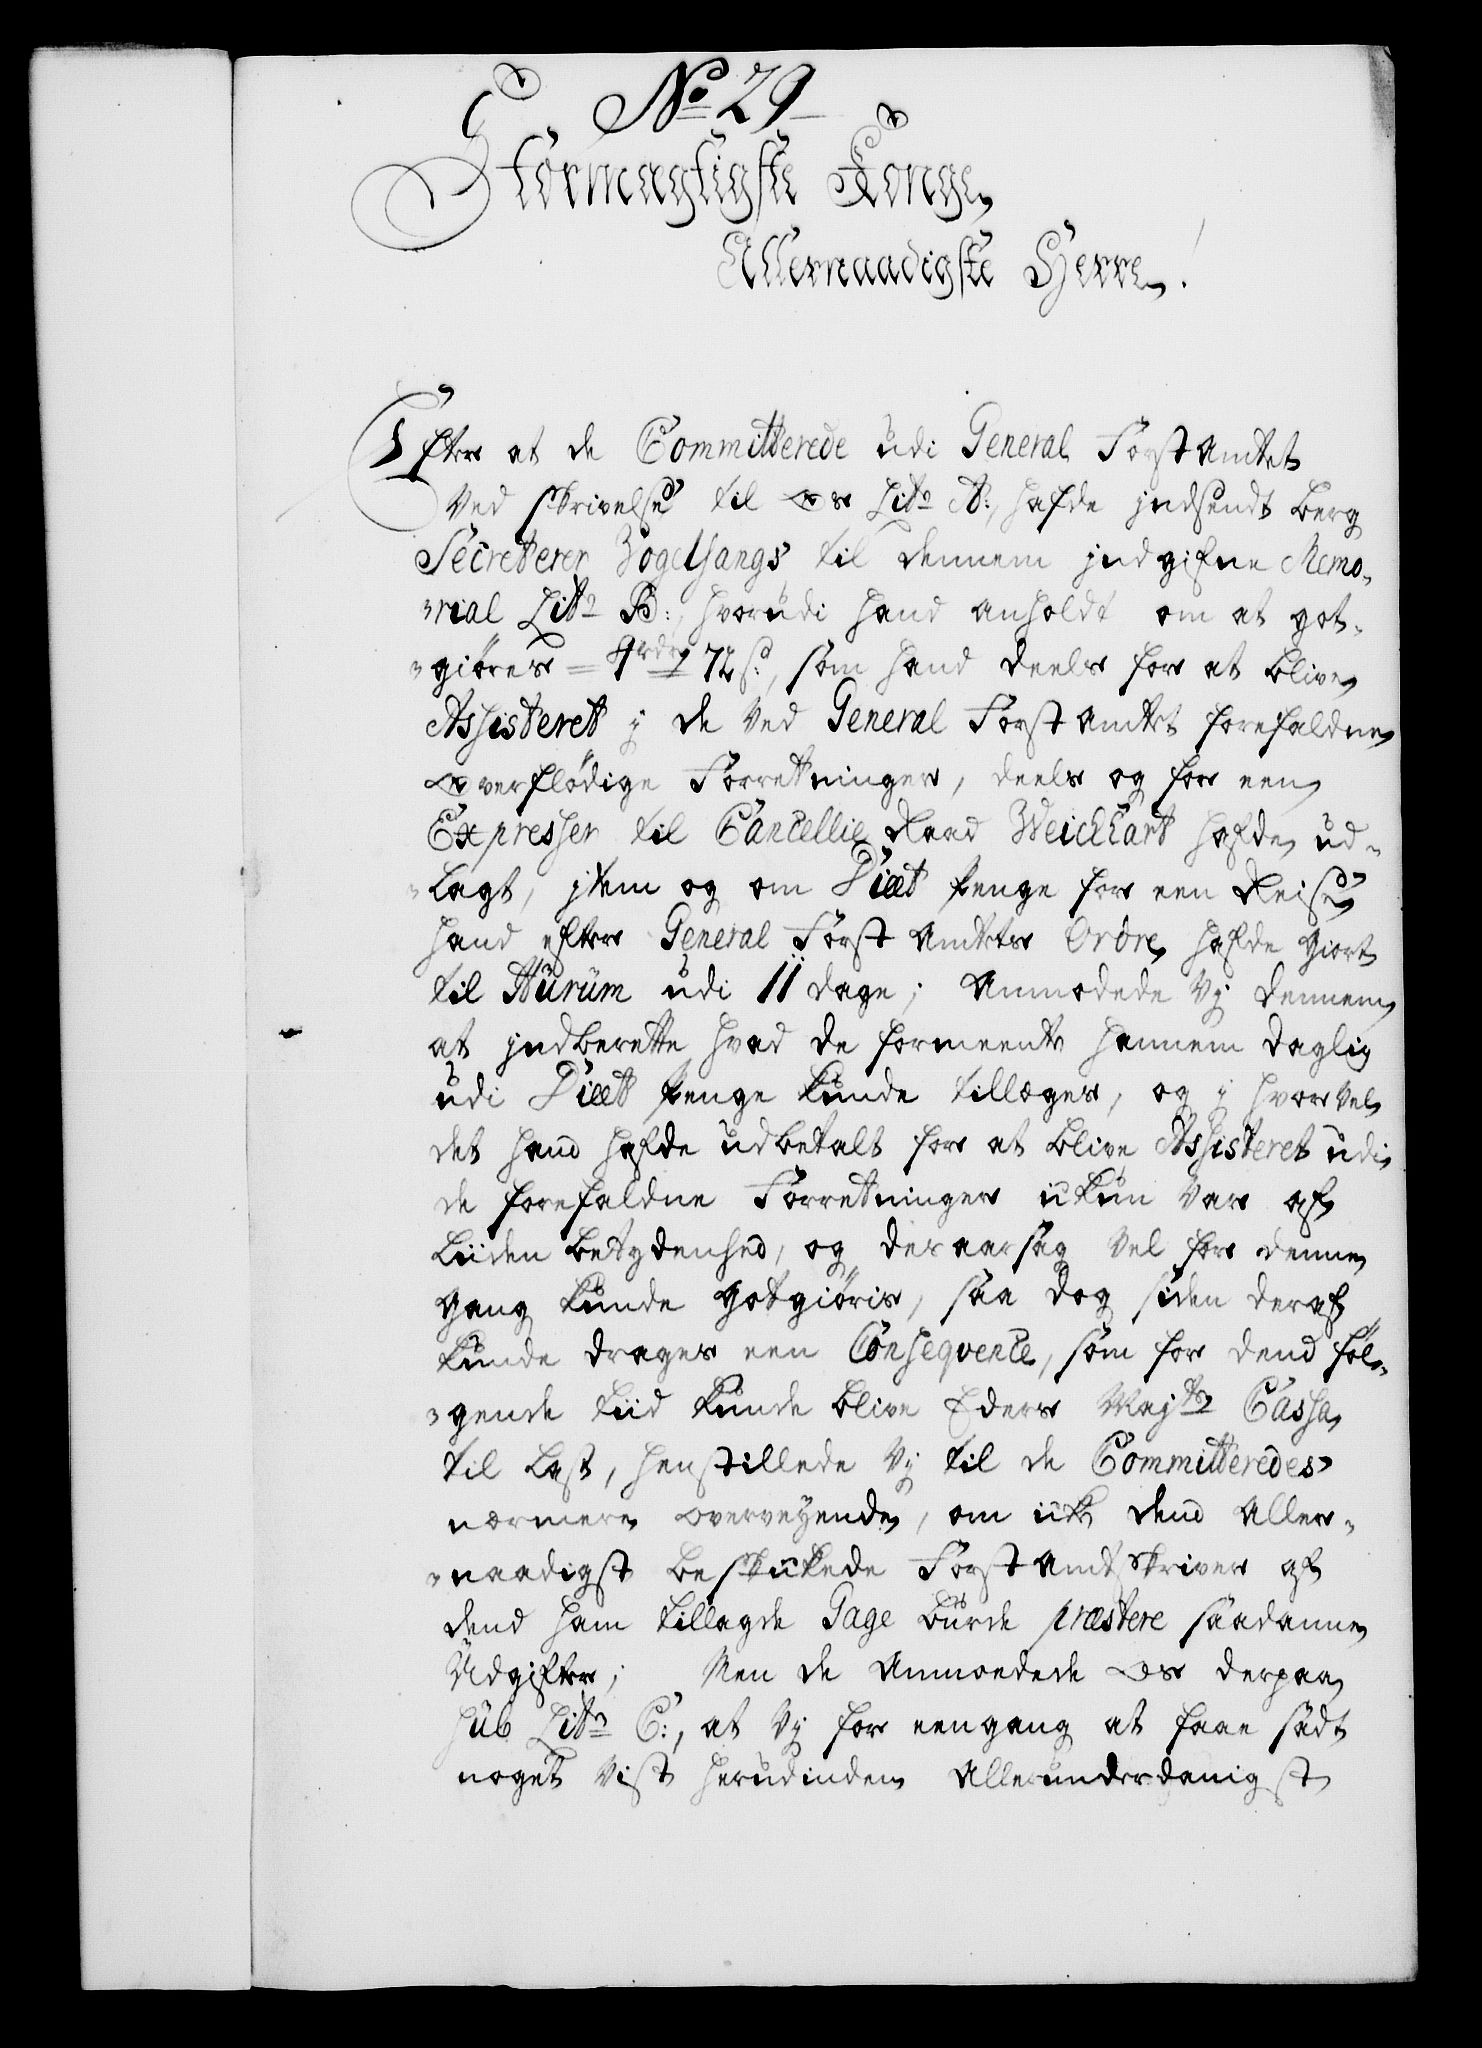 No 29
Stormægtigste Konge,
Allernaadigste Herre.
Efter at de Committerede udi General Forst Amtet
Ved skrivelse til os Litr A:, hafde jndsendt Berg
Secreterer Vogelsangs til dennem jndgifne Memo-
rial Litr B:, hvorudi hand anholdt om at got-
giöres = 9 rdr 72 s:, som hand deels for at blive
Assisteret j de ved General Forst Amtet forefaldne
overflödige Forretninger, deels og for een
Expresser til Cancellie Raad Weichart hafde ud-
lagt, jtem og om Diæt Penge for een Reise
hand efter General Forst Amtets Ordre hafde giort
til Aurum udi 11 dage; Anmodede Vj dennem
at jndberette hvad de formeente hannem daglig
udi Diæt Penge kunde tillæges, og j hvorvel
det hand hafde udbetalt for at blive Assisteret udi
de forefaldne Forretninger iikun var af
liiden betydenhed, og desaarsag vel for denne
gang kunde gotgiöris, saa dog siden deraf
kunde drages een Conseqvence, som for dend föl-
gende tiid kunde blive Eders Majts Cassa
til Last, henstillede Vj til de Committeredes
nærmere overveyende, om iike dend Aller-
naadigst beskikkede Forst Amtskriver af
dend ham tillagde Gage burde præstere saadanne
Udgifter; Men de Anmoedede os derpaa
sub Litr C:, at Vj for eengang at faae sadt
noget vist herudinden Allerunderdanigst